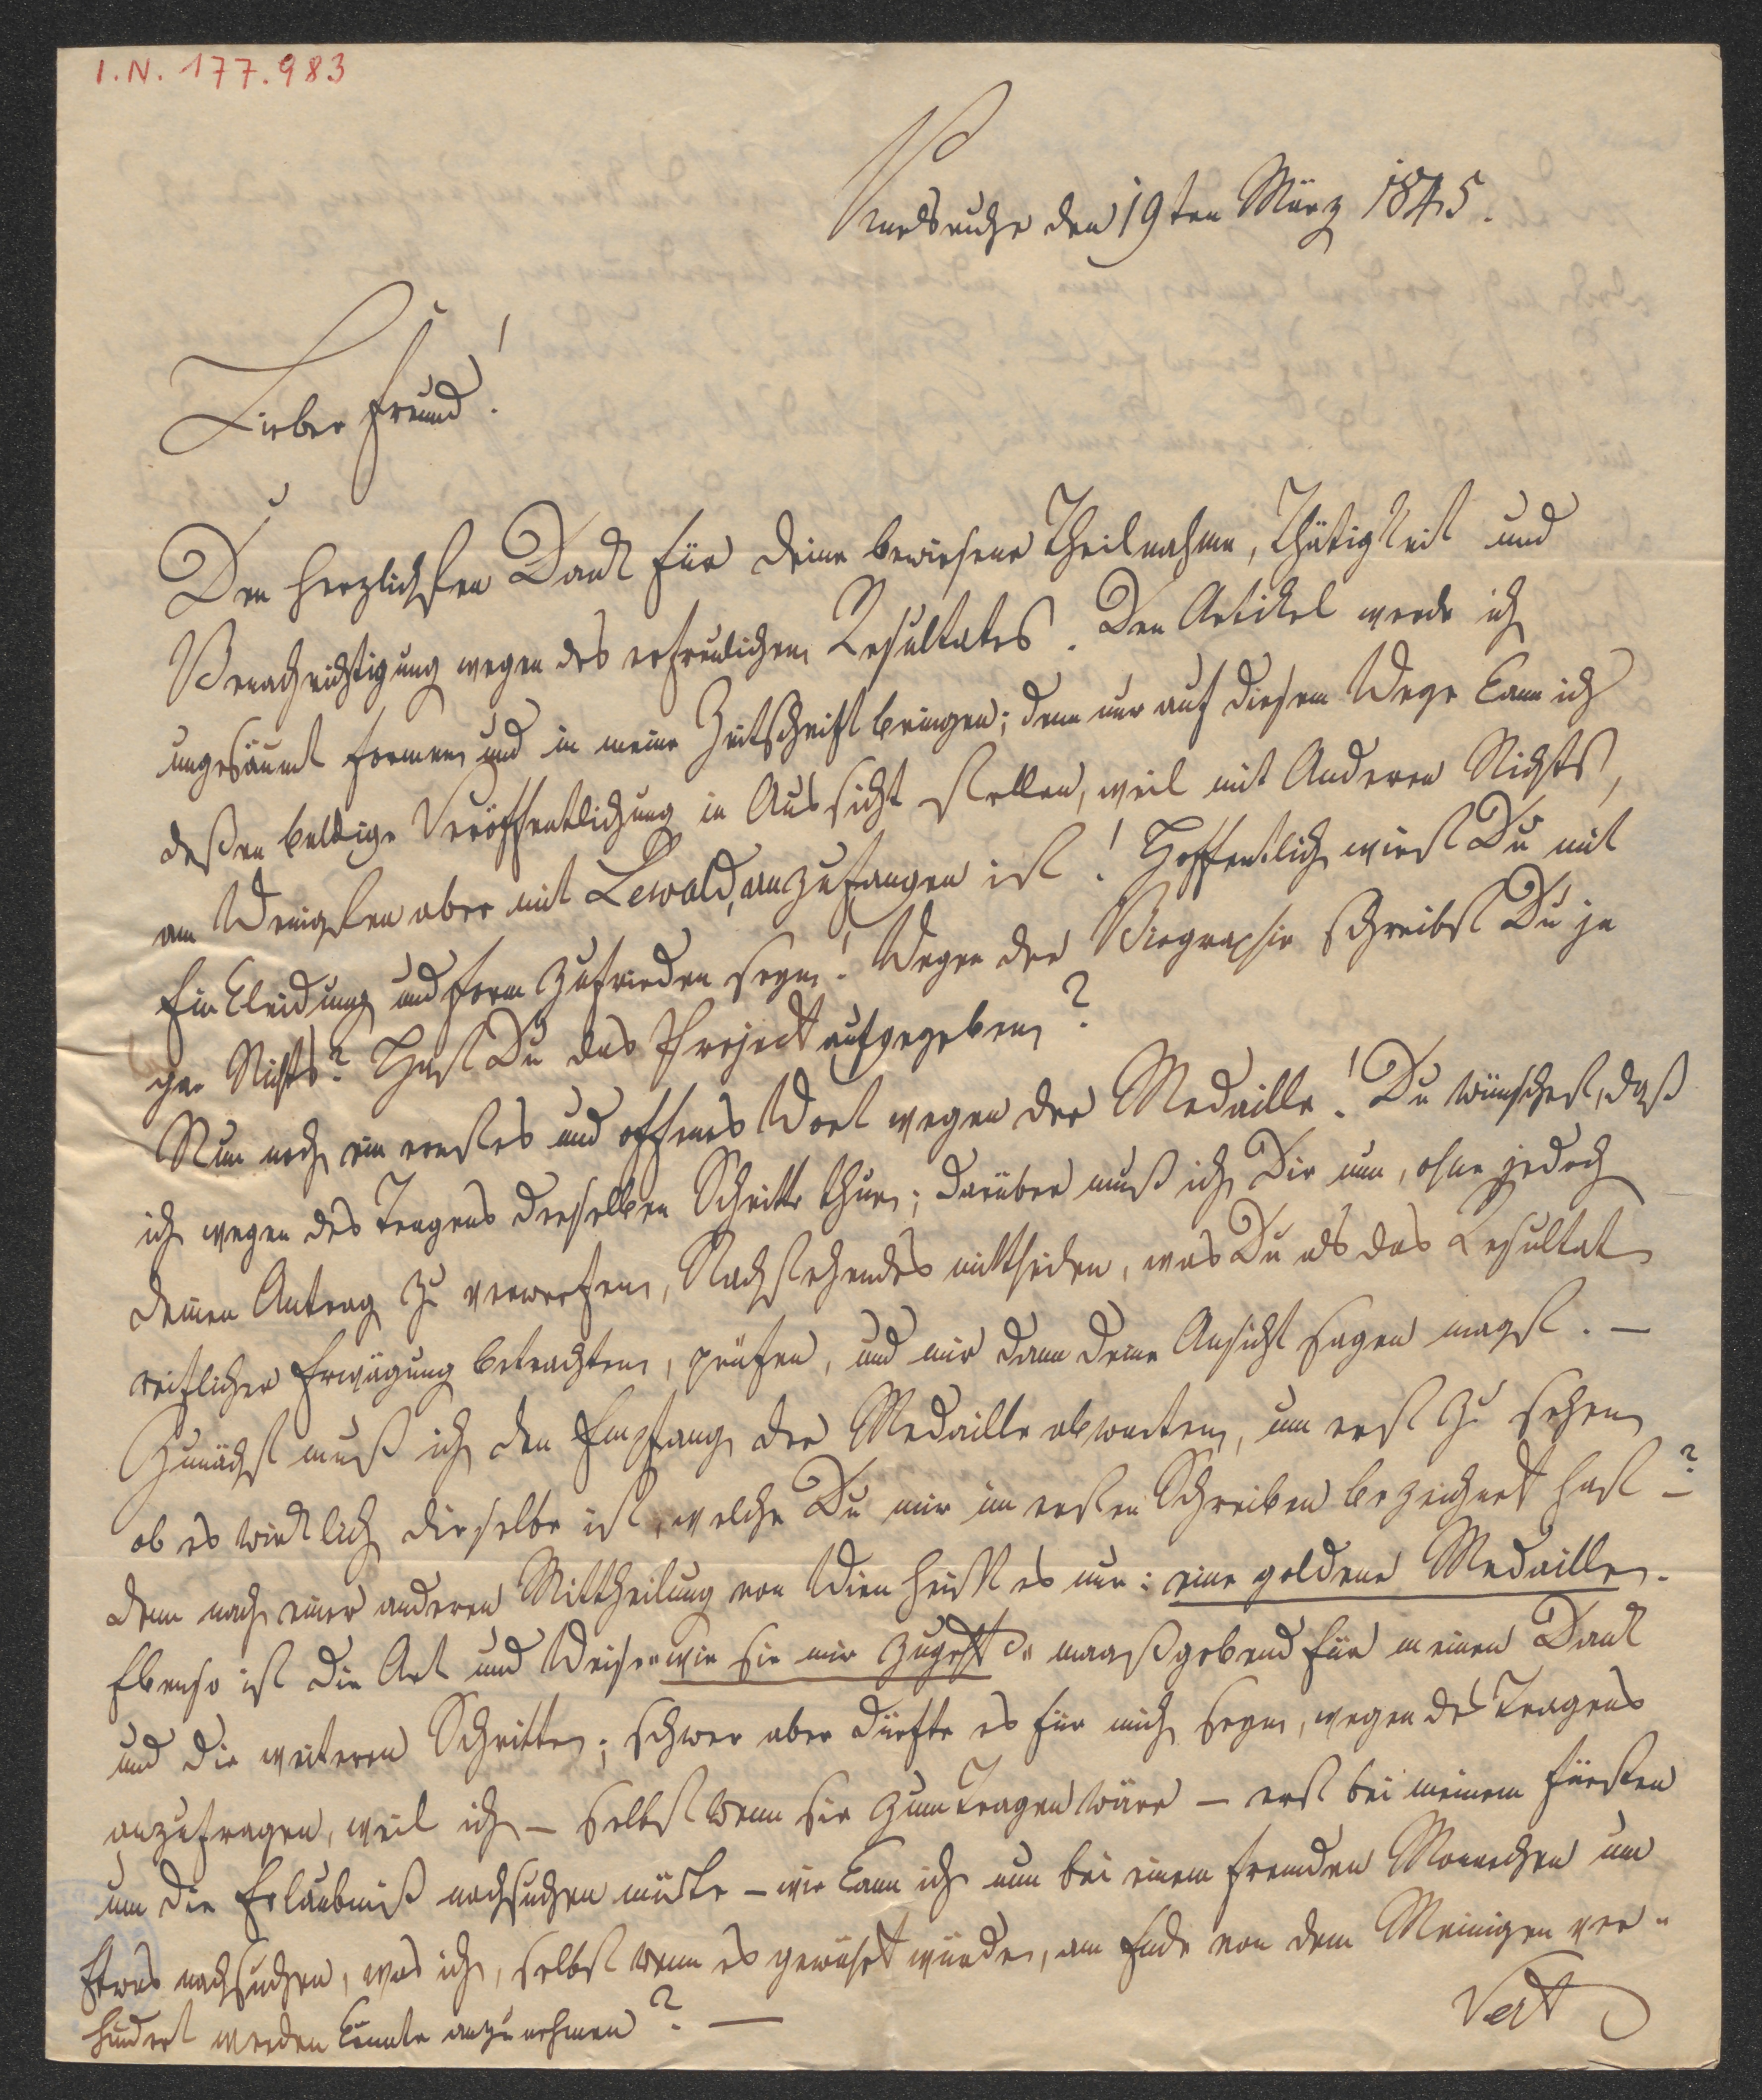 I.N. 177.983
Carlsruhe den 19ten März 1845.
Lieber Freund!
Den herzlichsten Dank für Deine bewiesene Theilnahme, Thätigkeit und
Benachrichtigung wegen des erfreulichen Resultates. Den Artikel werde ich
ungesäumt formen und in meine Zeitschrift bringen; denn nur auf diesem Wege kann ich
deßen baldige Veröffentlichung in Aussicht stellen, weil mit Anderen Nichts,
am Wenigsten aber mit Lewald, anzufangen ist! Hoffentlich wirst Du mit
Einkleidung und Form zufrieden seyn! Wegen der Biographie schreibst Du ja
gar Nichts? Hast Du das Project aufgegeben?
Nun noch ein ernstes und offenes Wort wegen der Medaille! Du wünschest, daß
ich wegen des Tragens derselben Schritte thue; darüber muß ich Dir nun, ohne jedoch
Deinen Antrag zu verwerfen, Nachstehendes mittheilen, was Du als das Resultat
reiflicher Erwägung betrachten, prüfen, und mir dann Deine Ansicht sagen magst. —
Zunächst muß ich den Empfang der Medaille abwarten, um erst zu sehen
ob es wirklich dieselbe ist, welche Du mir im ersten Schreiben bezeichnet hast —?
denn nach einer anderen Mittheilung von Wien heißt es nur: eine goldene Medaille.
Ebenso ist die Art und Weise „wie sie mir zugeht“ maaßgebend für meinen Dank
und die weiteren Schritte; schwer aber dürfte es für mich seyn, wegen des Tragens
anzufragen, weil ich — selbst wenn sie zum Tragen wäre — erst bei meinem Fürsten
um die Erlaubniß nachsuchen müßte — wie kann ich nun bei einem fremden Monarchen um
Etwas nachsuchen, was ich, selbst wenn es gewährt würde, am Ende von dem Meinigen ver-
hindert werden könnte anzunehmen? —